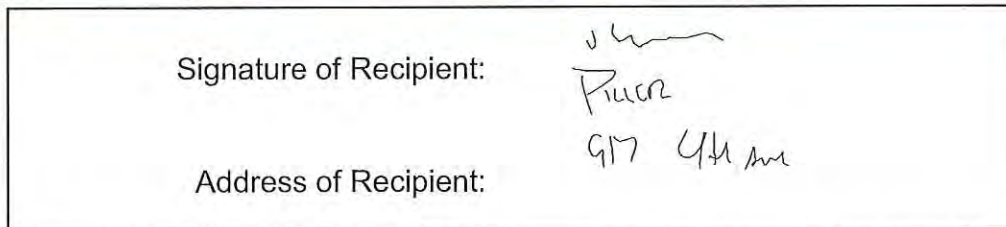 Signature of Recipient:
917 4th Ave
Address of Recipient: